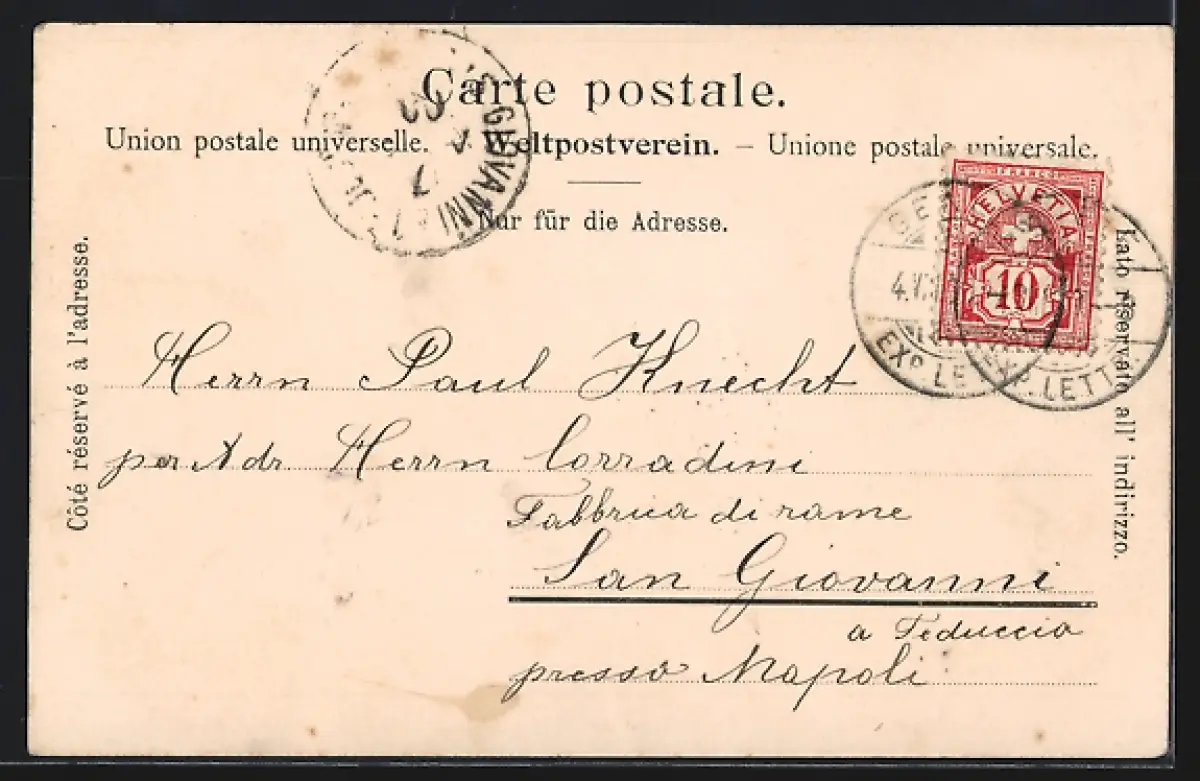 Carte postale.
Union postale universelle. – Weltpostverein. – Unione postale universale.
Nur für die Adresse.
Côté réservé à l'adresse.
Lato riservato all' indirizzo.
FRANCO
HELVETIA
10
EXP. LETT.
GIOVANNI
Herrn Paul Knecht
per Adr. Herrn Corradini
Fabbrica di rame
San Giovanni
a Teduccio
presso Napoli